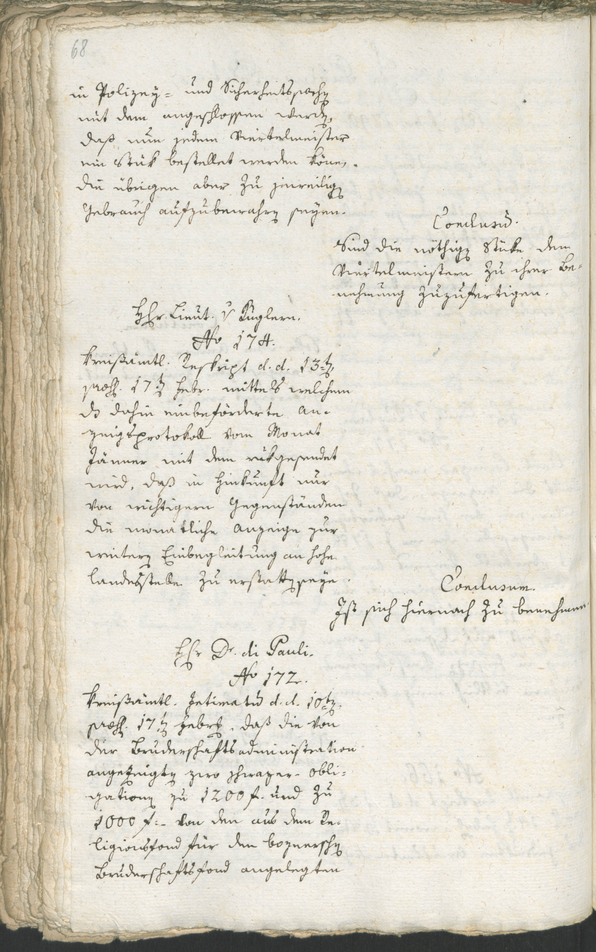 68
in Polizey- und Sicherheitssachen
mit dem angeschlossen werde,
daß nun jedem Viertelmeister
ein Stük bestellet werden köne,
die übrigen aber zu
Gebrauch aufzubewahren seyen.
Conclusum.
Sind die nöthigen Stüke den
Viertelmeistern zu ihrer Be-
nehmung zuzufertigen.
Hr. Lieut. v. Buglern.
No 174.
Kreißämtl. Reskript d.d. 13ten
präs. 17ten Febr. mittels welchem
das dahin einbeförderte An-
zeigsprotokoll vom Monat
Jänner mit dem rükgesendet
wird, daß in Hinkunft nur
von wichtigern Gegenständen
die monatliche Anzeige zur
weitern Einbegleitung an hohe
Landesstelle zu erstatten seye.
Conclusum.
Ist sich hiernach zu benehmen.
Hr. Dr. di Pauli.
No 172.
Kreißämtl. Intimatum d.d. 10ten
präs. 17ten Febr. daß die von
der Bruderschaftsadministration
angezeigten zwo Obli-
gationen zu 1200 f. und zu
1000 f. von den aus dem Re-
ligionsfond für den boznerschen
Bruderschaftsfond angelegten